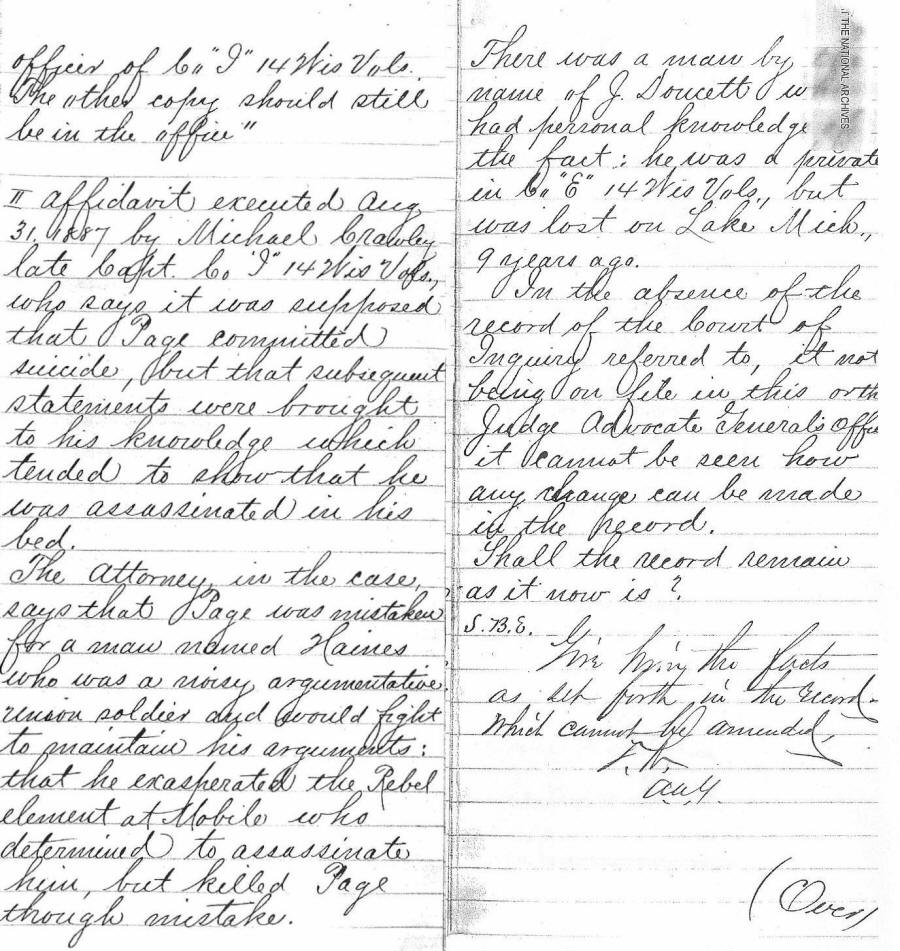 officer of Co "I" 14 Wis Vols.
The other copy should still
be in the office"
II affidavit executed Aug
31. 1887 by Michael Crawley
late Capt. Co "I" 14 Wis Vols.,
who says it was supposed
that Page committed
suicide, but that subsequent
statements were brought
to his knowledge which
tended to show that he
was assassinated in his
bed.
The Attorney in the case,
says that Page was mistaken
for a man named Haines
who was a noisy argumentative
union soldier and would fight
to maintain his arguments:
that he exasperated the Rebel
element at Mobile who
determined to assassinate
him, but killed Page
though mistake.
There was a man by
name of J. Doucett w
had personal knowledge
the fact: he was a private
in Co "E" 14 Wis Vols., but
was lost on Lake Mich.,
9 years ago.
In the absence of the
record of the Court of
Inquiry referred to, it not
being on file in this or th
Judge Advocate General's Office
it cannot be seen how
any change can be made
in the record.
Shall the record remain
as it now is?
S.B.E.
Give him the facts
as set forth in the record.
which cannot be amended,
A.A.G.
(Over)
T THE NATIONAL ARCHIVES